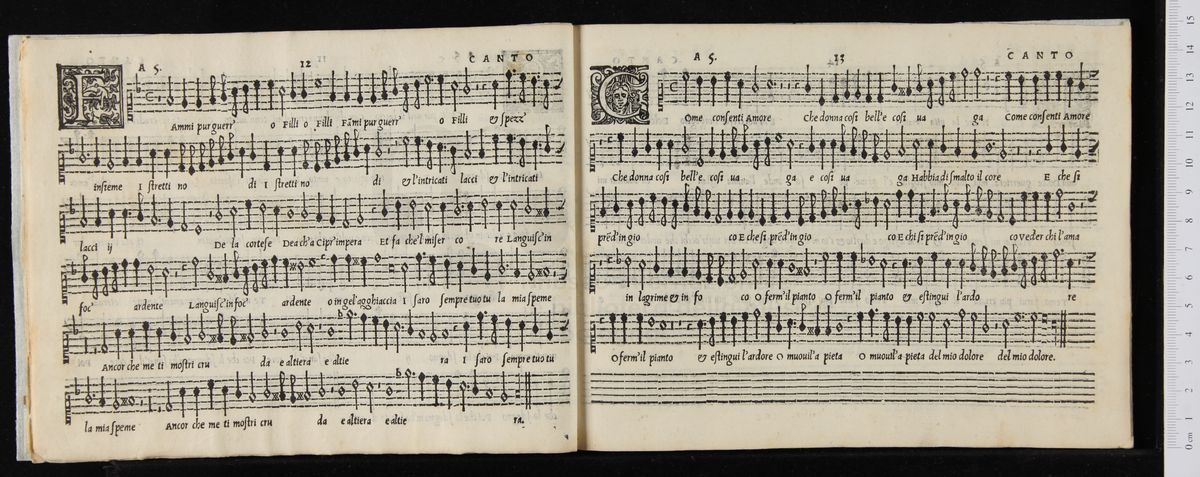 A 5.
12
CANTO
F Ammi pur guerr' o Filli o Filli Fāmi pur guerr' o Filli & spezz'
insieme I stretti no di I stretti no di & l'intricati lacci & l'intricati
lacci ij De la cortese Dea ch'a Cipr'impera Et fa che'l miser co re Languisc'in
foc' ardente Languisc'in foc' ardente o in gel'agghiaccia I saro sempre tuo tu la mia speme
Ancor che me ti mostri cru da e altiera e altie ra I saro sempre tuo tu
la mia speme Ancor che me ti mostri cru da e altiera e altie ra.
A 5.
13
CANTO
C Ome consenti Amore Che donna cosi bell'e cosi ua ga Come consenti Amore
Che donna cosi bell'e cosi ua ga e cosi ua ga Habbia di smalto il core E che si
prēd'in gio co E che si prēd'in gio co E chi si prēd'in gio co Veder chi l'ama
in lagrime & in fo co O ferm'il pianto O ferm'il pianto & estingui l'ardo re
O ferm'il pianto & estingui l'ardore O muouil'a pieta O muouil'a pieta del mio dolore del mio dolore.
0 cm 1 2 3 4 5 6 7 8 9 10 11 12 13 14 15